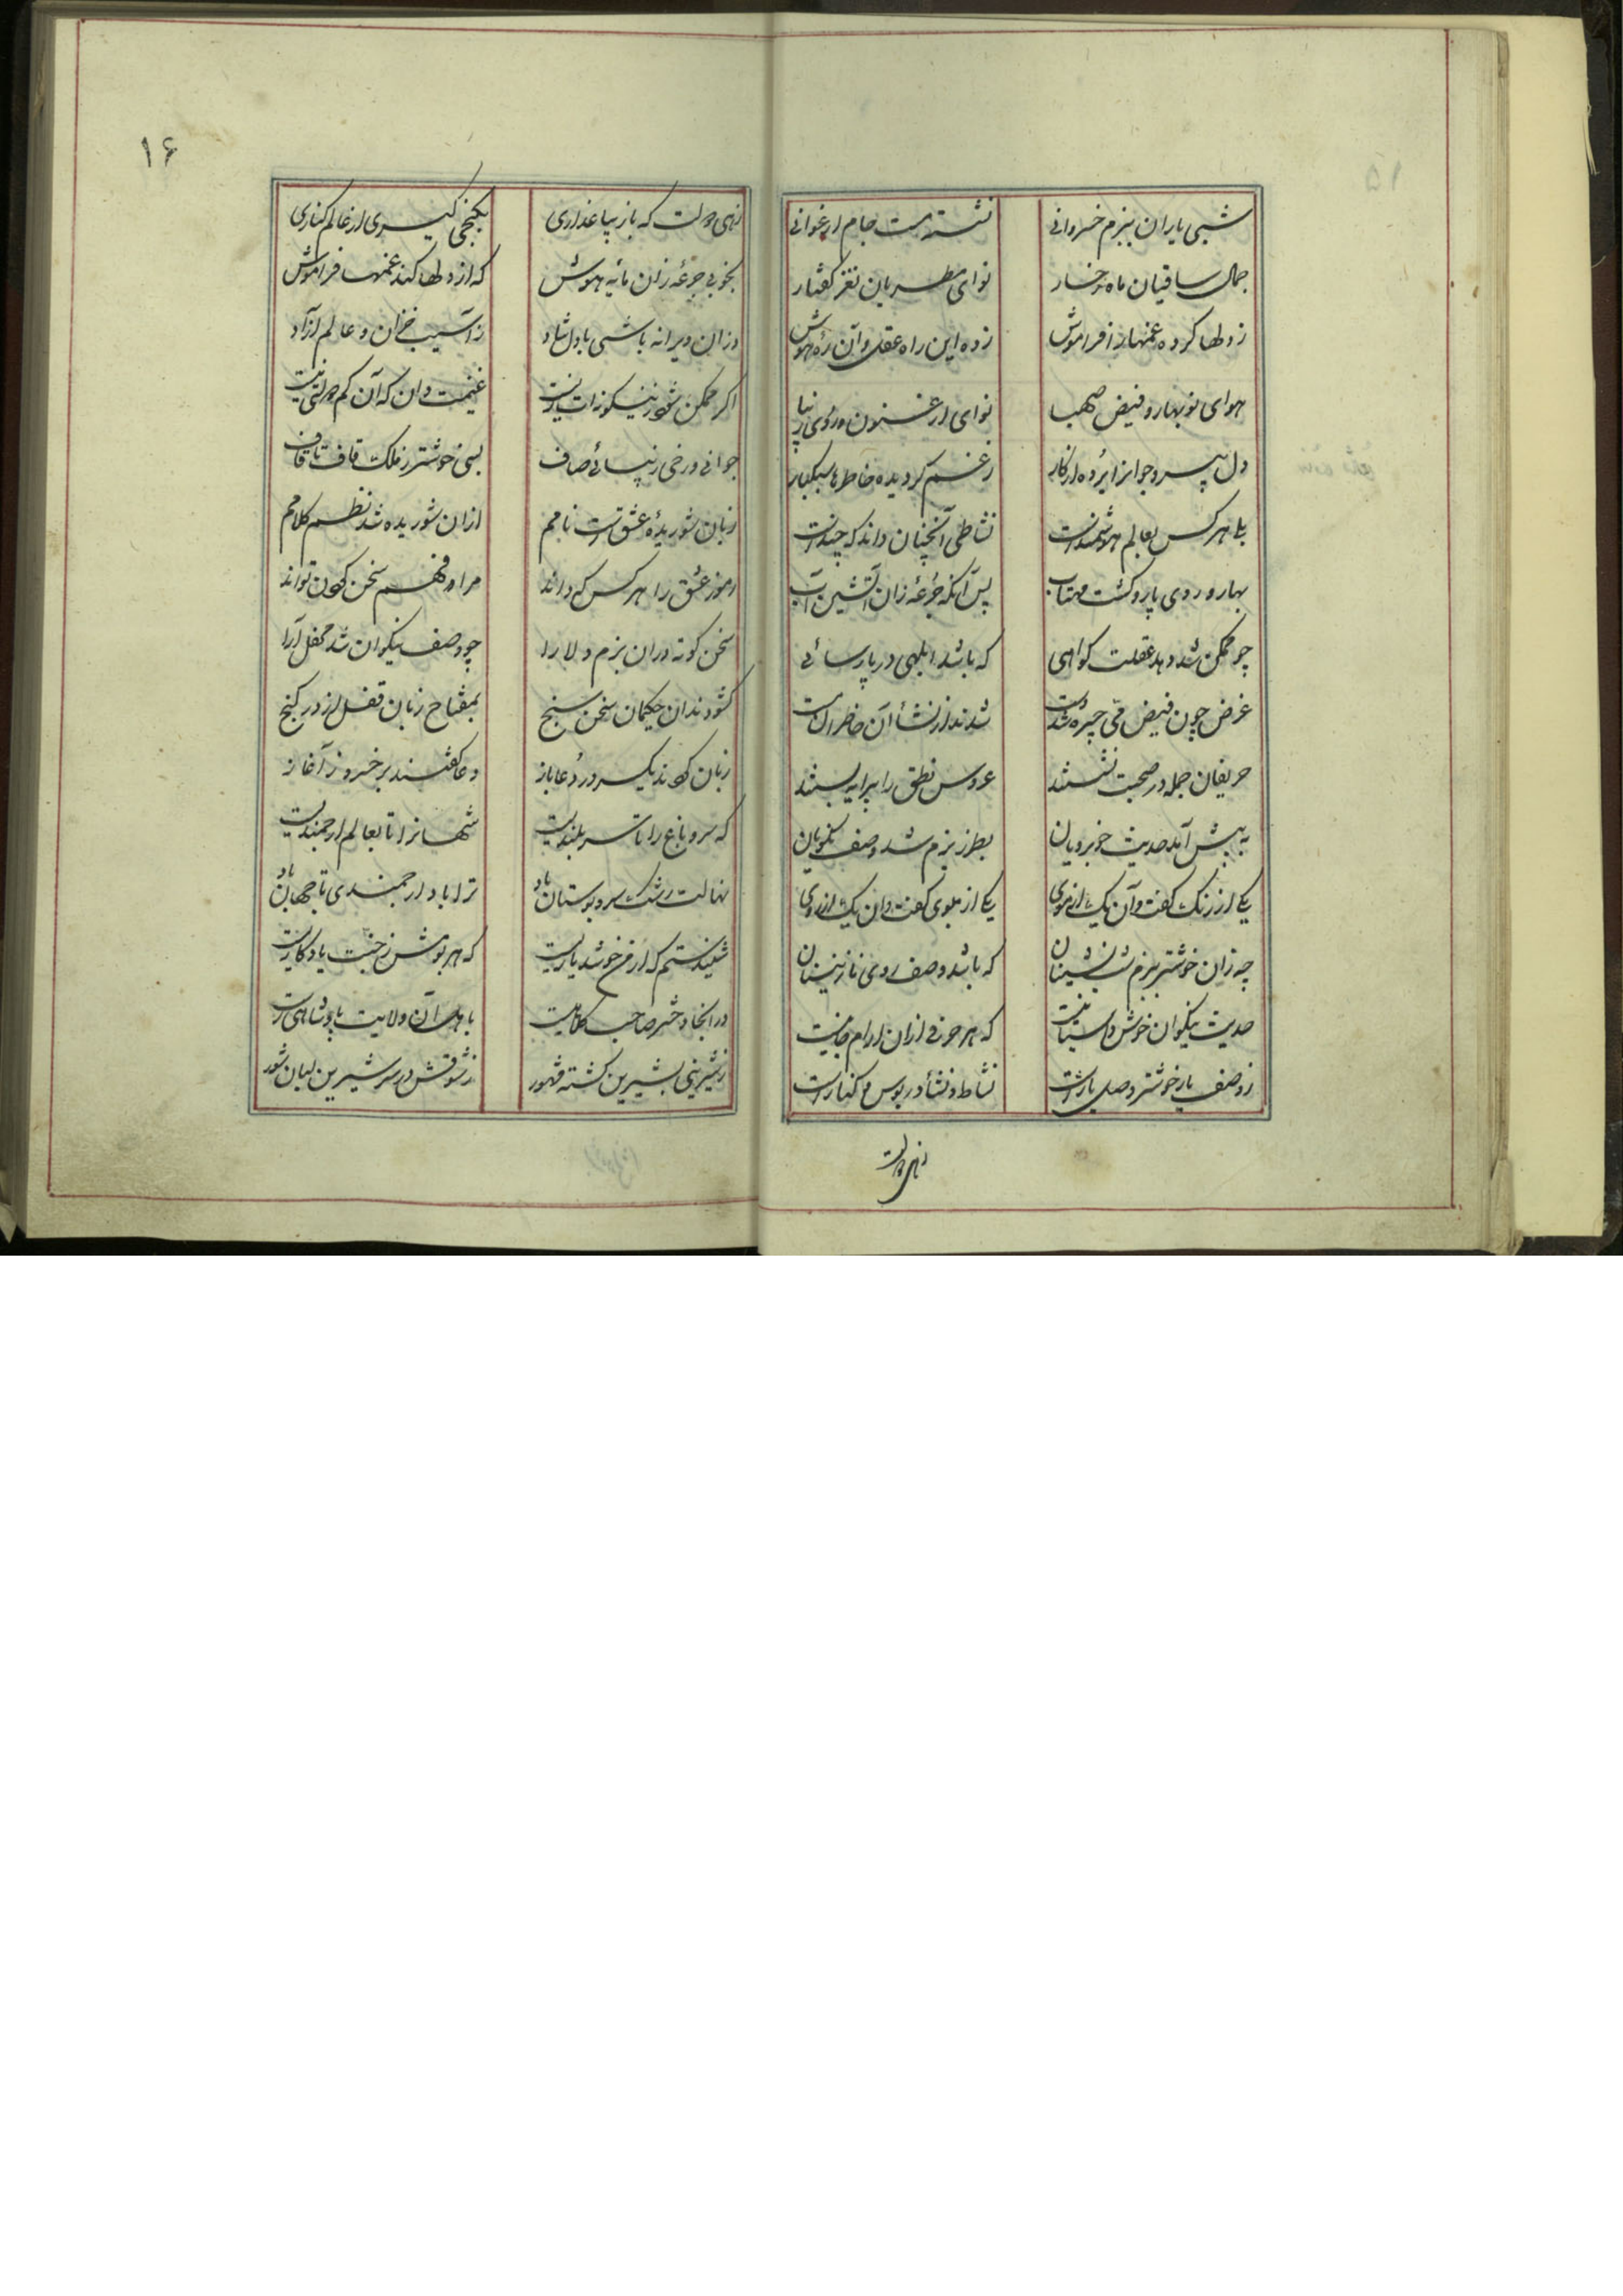 شبی یاران ببزم خسروانی نشسته مست جام ارغوانی
جمال ساقیان ماه رخسار نوای مطربان نغز گفتار
ز دلها کرده غمها را فراموش زده این راه عقل و آن ره هوش
هوای نوبهار و فیض صهبا نوای ارغنون و روی زیبا
دل پیر و جوانرا برده از کار ز غم گردیده خاطرها سبکبار
بلی هر کس بعالم هوشمند است نشاطی آنچنان داند که چند است
بهار و روی یار و گشت مهتاب پس آنگه جرعهٔ زان آتشین آب
چو ممکن شد دهد عقلت گواهی که باشد ابلهی در پارسائی
غرض چون فیض می چیره شدست شدند از نشأ آن خاطران مست
حریفان جمله در صحبت نشستند عروس نطق را پیرایه بستند
به پیش آمد حدیث خوبرویان بطرز بزم شد وصف نکویان
یکی از رنگ گفت و آن یک از موی یکی از بوی گفت و آن یک از روی
چه زان خوشتر ببزم شب‌نشینان که باشد وصف روی نازنینان
حدیث نیکوان خوش داستانیست که هر حرفی از آن آرام جانیست
ز وصف یار خوشتر وصل یار است نشاط و نشأ در بوس و کنار است
زهی دولت
۱۶
زهی دولت که با زیبا عذاری بکنجی گیری از عالم کناری
بخوبی جرعهٔ زان مایهٔ هوش که از دلها کند غمها فراموش
در آن ویرانه باشی با دل شاد ز آسیب خزان و عالم آزاد
اگر ممکن شود زینگونه‌ات زیست غنیمت دان که آن کم دولتی نیست
جوانی و رخی زیبا می صاف بسی خوشتر ز ملک قاف تا قاف
زبان شوریدهٔ عشق است نامم از آن شوریده شد نظم کلامم
رموز عشق را هر کس که داند مراد فهم سخن کردن تواند
سخن کوته در آن بزم دلارا چو وصف نیکوان شد محفل آرا
گشودند آن حکیمان سخن سنج بمفتاح زبان قفل از در گنج
زبان کردند یکسر در دعا باز دعا گفتند بر خسرو ز آغاز
که سرو باغ را تا سربلندیست شهانرا تا بعالم ارجمندیست
نهالت رشک سرو بوستان باد ترا باد ارجمندی تا جهان باد
شنیدستم که ارمن خوش دیاریست که هر بومش ز جنت یادگاریست
در آنجا دختر صاحب کلاهیست باهل آن ولایت پادشاهیست
ز شیرینی بشیرین گشته مشهور ز شوقش در سر شیرین لبان شور